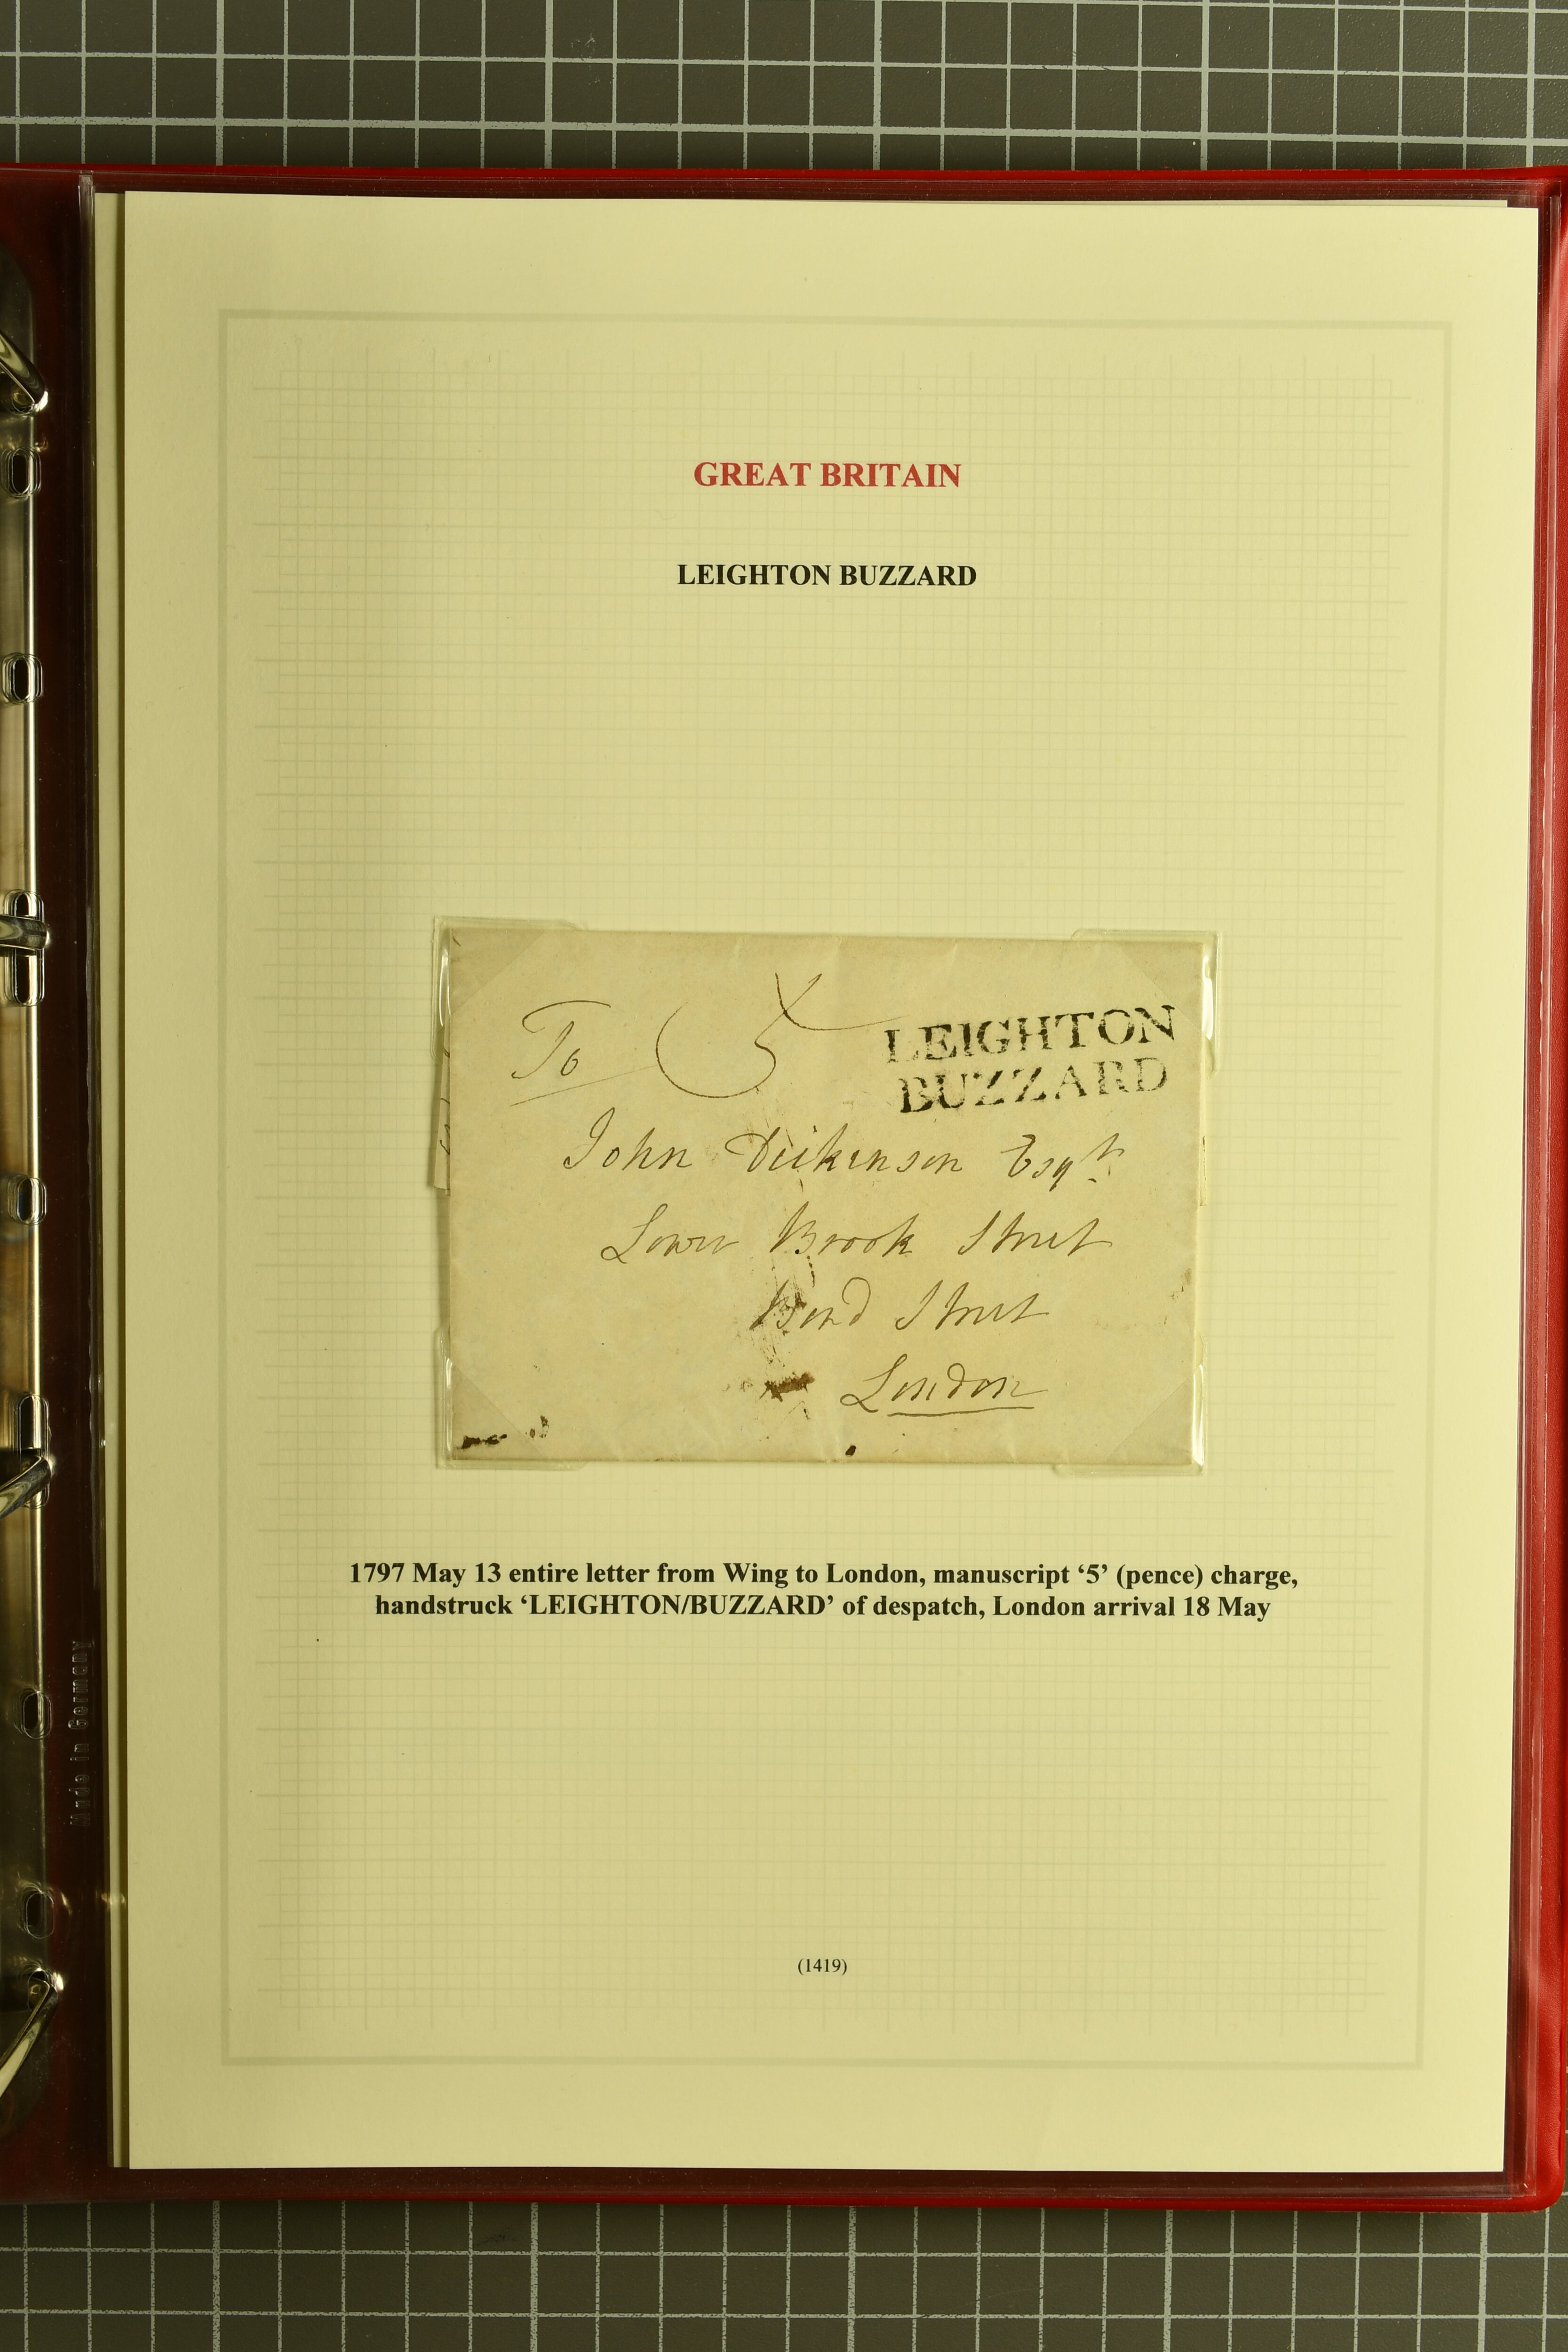 GREAT BRITAIN
LEIGHTON BUZZARD
To 5
LEIGHTON
BUZZARD
John Dickenson Esqr.
Lower Brook Street
Bond Street
London
1797 May 13 entire letter from Wing to London, manuscript ‘5’ (pence) charge,
handstruck ‘LEIGHTON/BUZZARD’ of despatch, London arrival 18 May
(1419)
Made in Germany